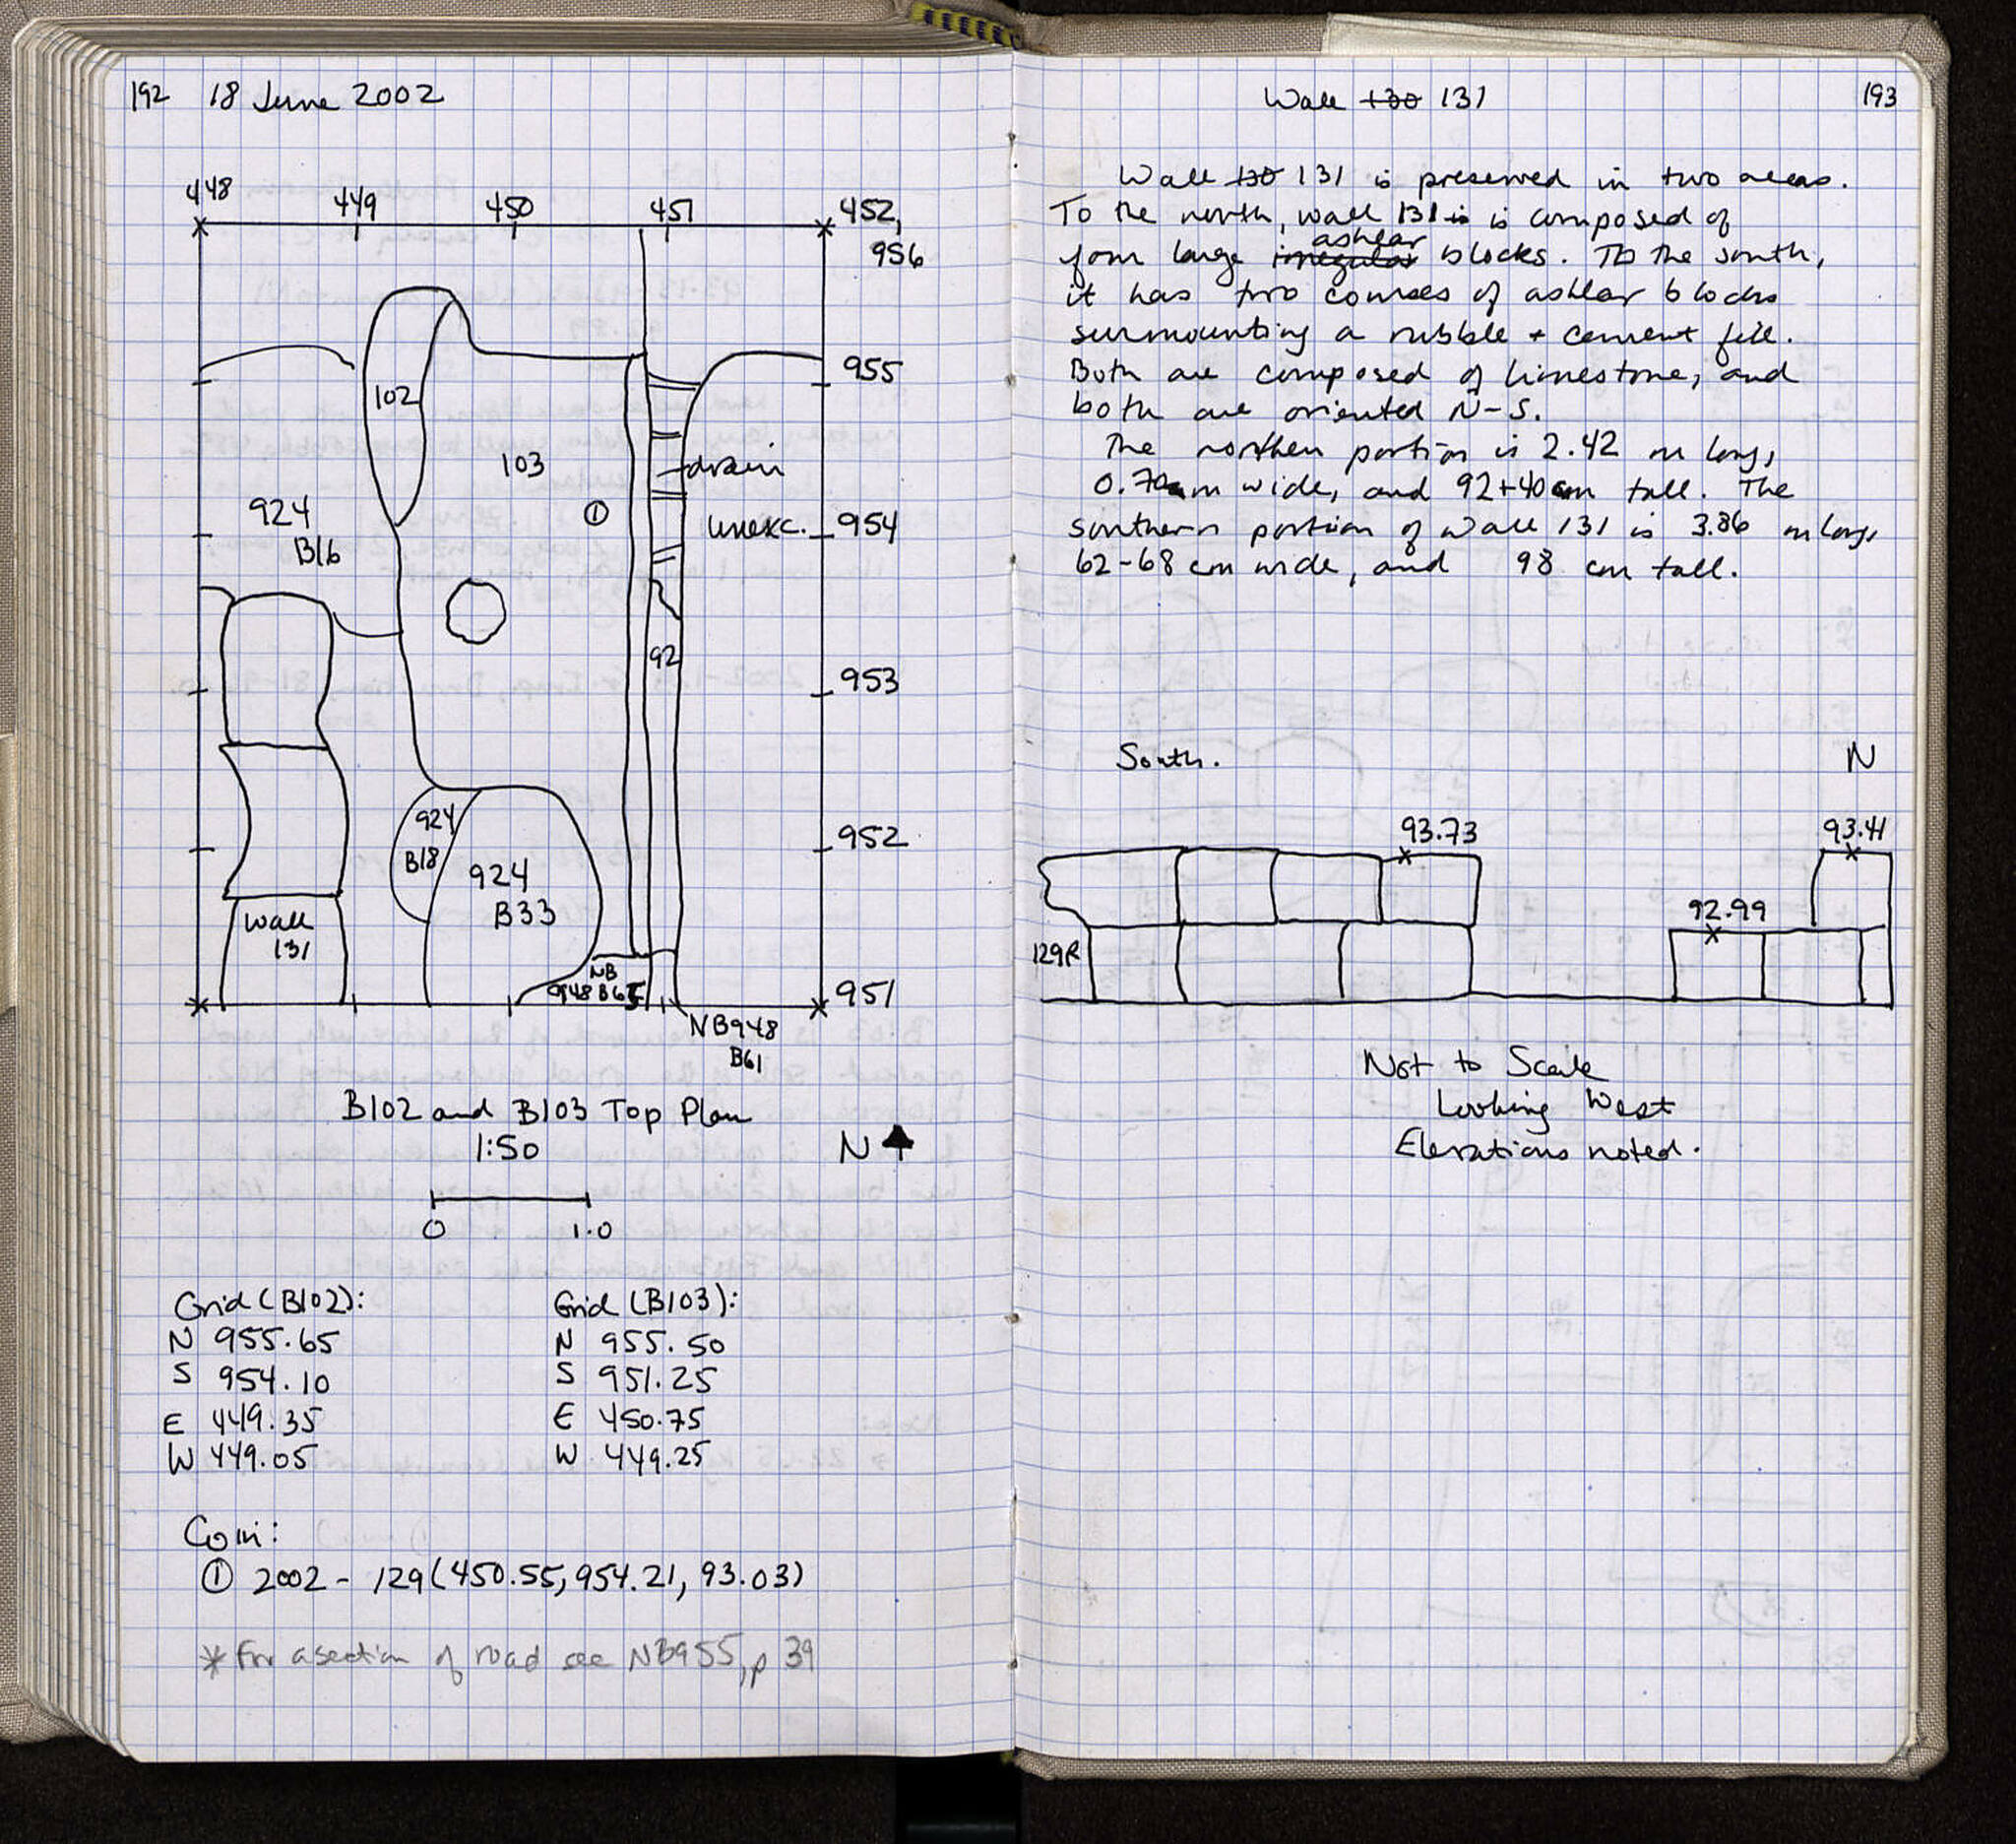 192 18 June 2002
448 449 450 451 452,
956
955
102
103
drain
924
B16
①
unexc.
954
92
953
924
B18
952
924
B33
Wall
131
NB
948 B65
951
NB948
B61
B102 and B103 Top Plan
1:50
N
0 1.0
Grid (B102):
N 955.65
S 954.10
E 449.35
W 449.05
Grid (B103):
N 955.50
S 951.25
E 450.75
W 449.25
Coin:
① 2002 - 129 (450.55, 954.21, 93.03)
* For a section of road see NB955, p 39
Wall 130 131
193
Wall 130 131 is preserved in two areas.
To the north, wall 131 is is composed of
four large irregular ashlar blocks. To the south,
it has two courses of ashlar blocks
surmounting a rubble + cement fill.
Both are composed of limestone, and
both are oriented N-S.
The northern portion is 2.42 m long,
0.70 m wide, and 92+40 cm tall. The
southern portion of Wall 131 is 3.86 m long,
62-68 cm wide, and 98 cm tall.
South.
N
93.73
93.41
92.99
129R
Not to Scale
Looking West
Elevations noted.